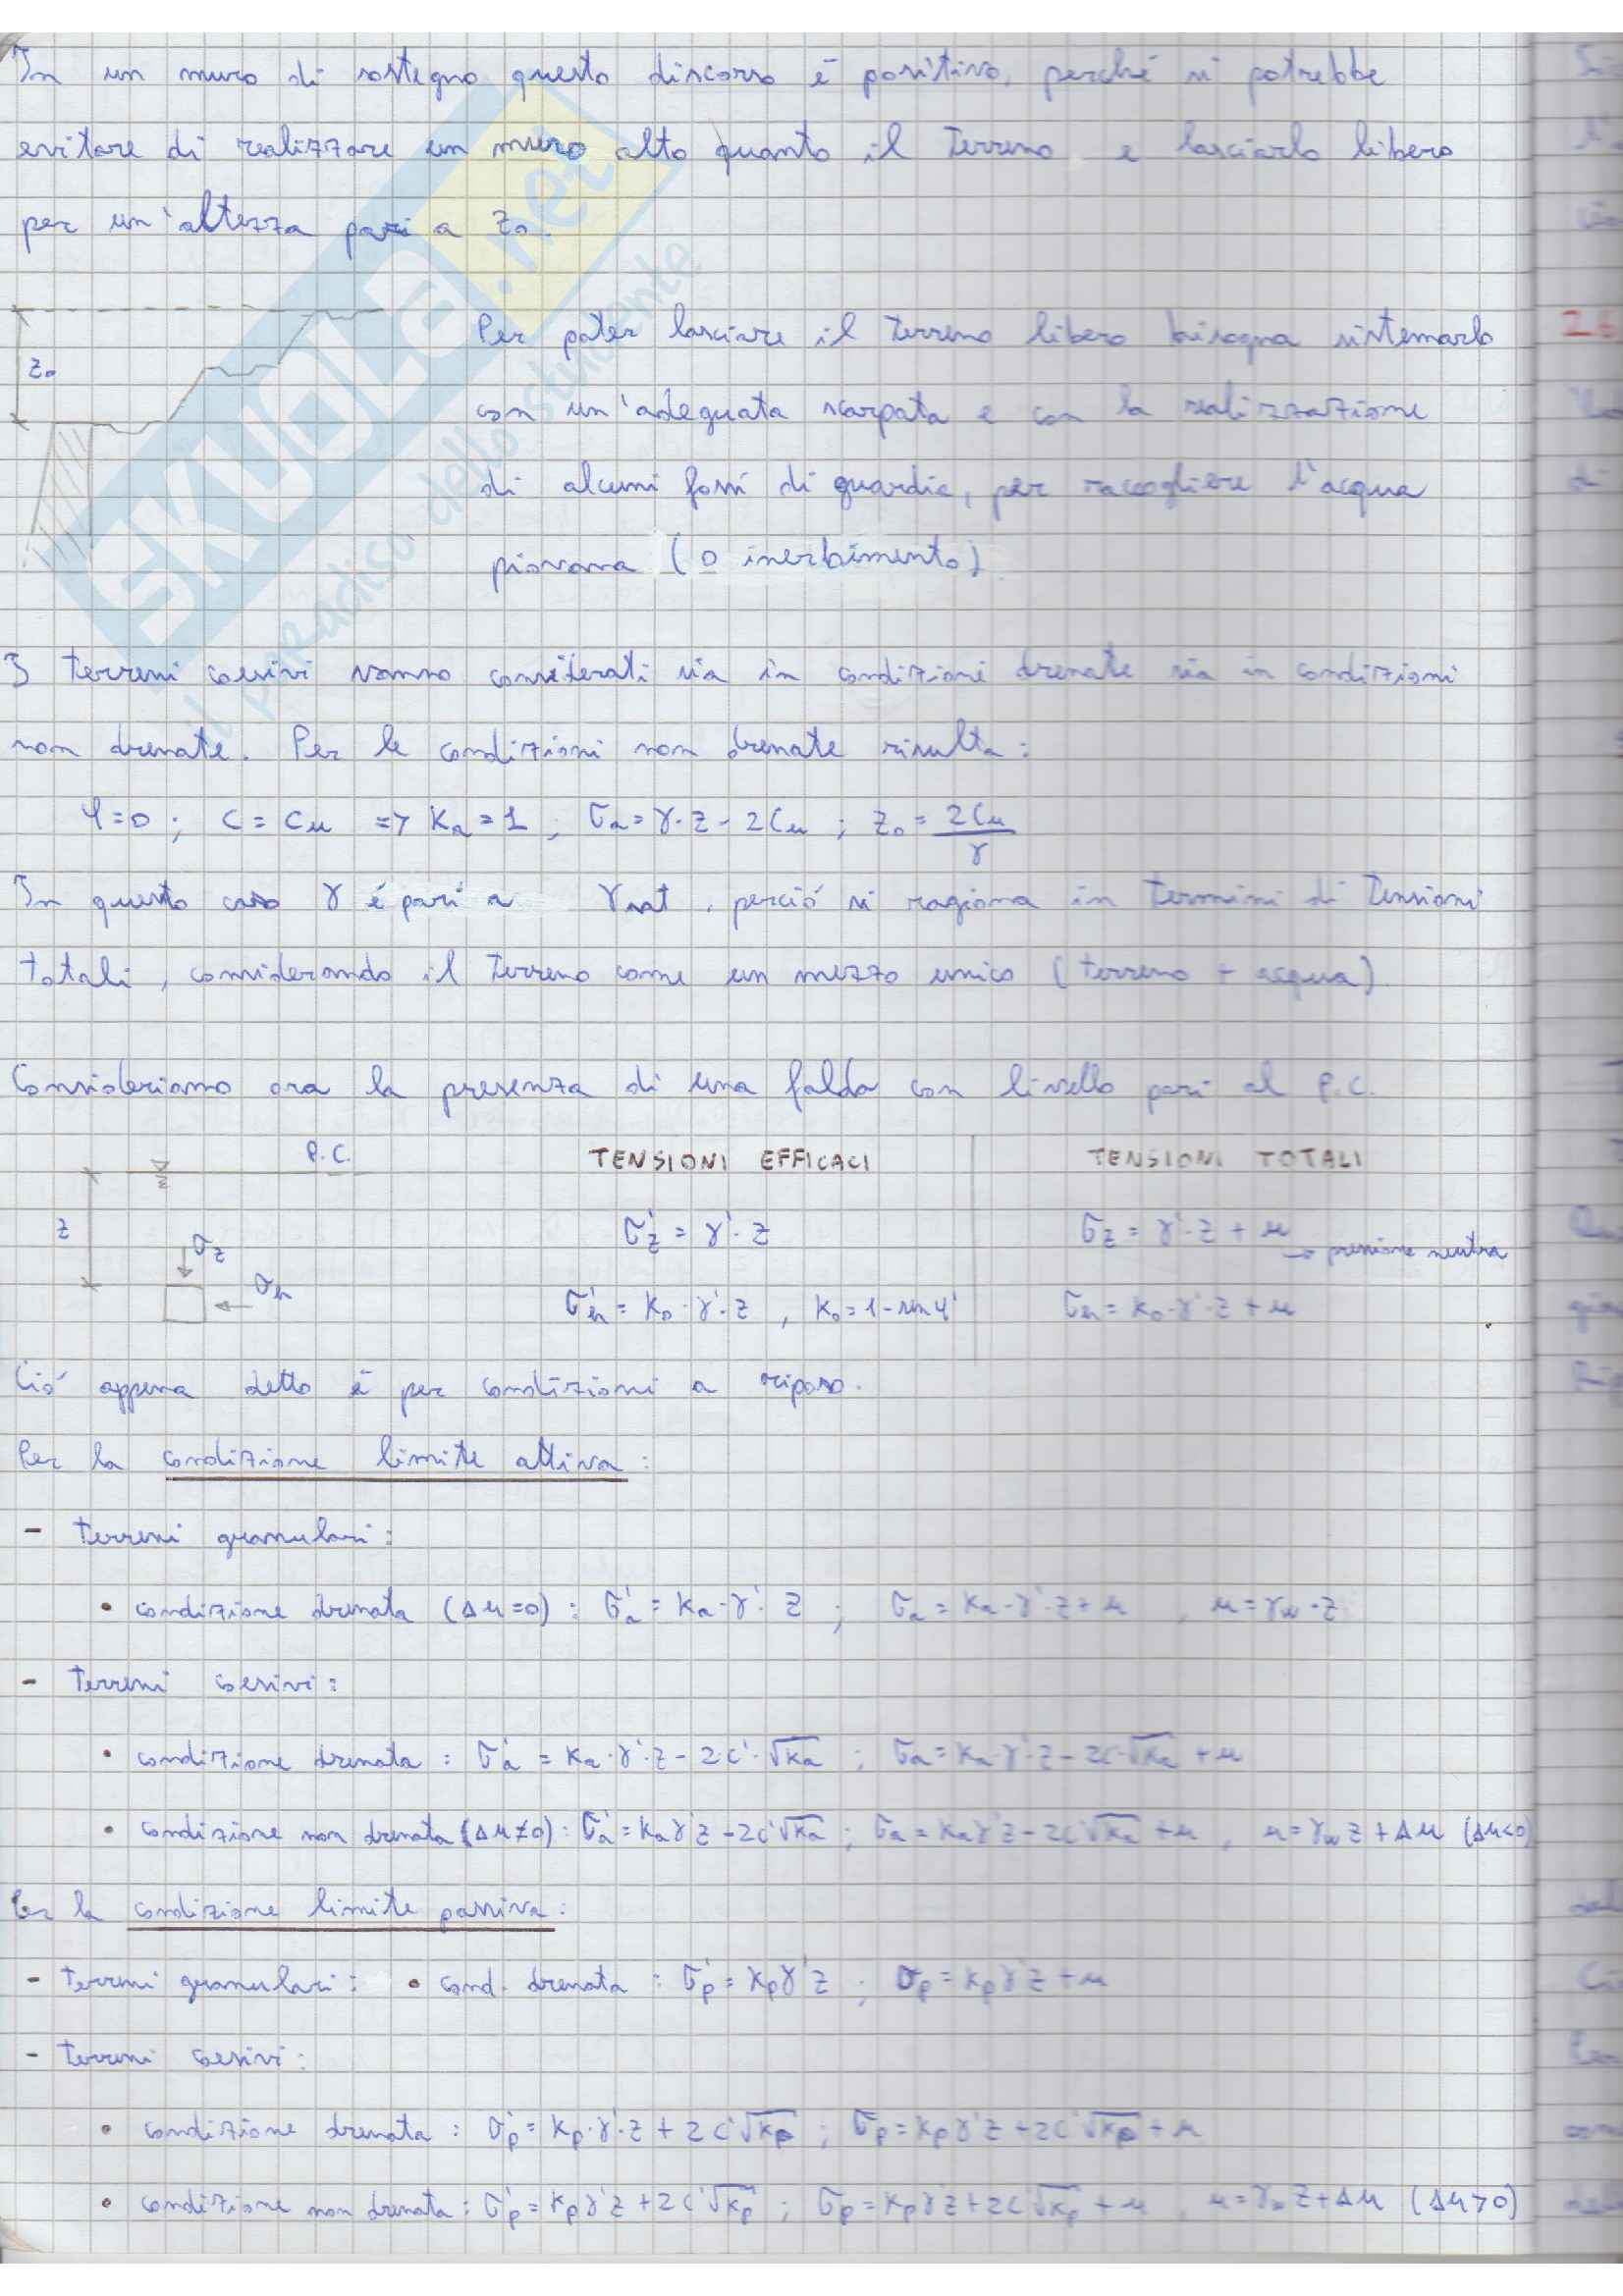 In un muro di sostegno questo discorso è positivo, perché si potrebbe
evitare di realizzare un muro alto quanto il terreno e lasciarlo libero
per un'altezza pari a z₀.
z₀
Per poter lasciare il terreno libero bisogna sistemarlo
con un'adeguata scarpata e con la realizzazione
di alcuni fossi di guardia, per raccogliere l'acqua
piovana (o inerbimento).
SKUOLA.net
il paradiso dello studente
I terreni coesivi vanno considerati sia in condizioni drenate sia in condizioni
non drenate. Per le condizioni non drenate risulta:
φ=0 ; c = cu => Ka = 1 ; σa = γ·z - 2cu ; z₀ = 2cu/γ
In questo caso γ è pari a γsat, perciò si ragiona in termini di tensioni
totali, considerando il terreno come un mezzo unico (terreno + acqua)
Consideriamo ora la presenza di una falda con livello pari al P.C.
P.C.
TENSIONI EFFICACI
TENSIONI TOTALI
z
σz
σh
σ'z = γ'·z
σz = γ'·z + u
→ pressione neutra
σ'h = K₀·γ'·z , K₀ = 1-sen φ'
σh = K₀·γ'·z + u
Ciò appena detto è per condizioni a riposo.
Per la condizione limite attiva:
- terreni granulari:
• condizione drenata (Δu=0) : σ'a = Ka·γ'·z ; σa = Ka·γ'·z + u , u = γw·z
- terreni coesivi:
• condizione drenata : σ'a = Ka·γ'·z - 2c'·√Ka ; σa = Ka·γ'·z - 2c'·√Ka + u
• condizione non drenata (Δu≠0) : σ'a = Kaγ'z - 2c'√Ka ; σa = Kaγ'z - 2c'√Ka + u , u = γw z + Δu (Δu<0)
Per la condizione limite passiva:
- terreni granulari: • cond. drenata : σ'p = Kpγ'z ; σp = Kpγ'z + u
- terreni coesivi:
• condizione drenata : σ'p = Kp·γ'·z + 2c'√Kp ; σp = Kpγ'z + 2c'√Kp + u
• condizione non drenata : σ'p = Kpγ'z + 2c'√Kp ; σp = Kpγ'z + 2c'√Kp + u , u = γw z + Δu (Δu>0)